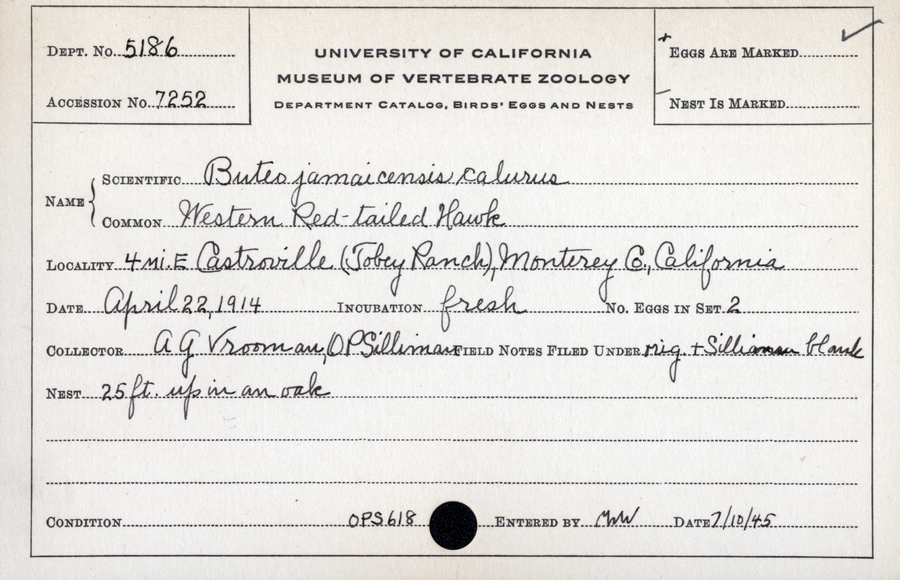 DEPT. No. 5186
ACCESSION No. 7252
UNIVERSITY OF CALIFORNIA
MUSEUM OF VERTEBRATE ZOOLOGY
DEPARTMENT CATALOG, BIRDS' EGGS AND NESTS
EGGS ARE MARKED
NEST IS MARKED
NAME
SCIENTIFIC Buteo jamaicensis calurus
COMMON Western Red-tailed Hawk
LOCALITY 4 mi. E Castroville (Tobey Ranch), Monterey Co., California
DATE April 22, 1914 INCUBATION fresh No. EGGS IN SET 2
COLLECTOR A G Vrooman, OP Silliman FIELD NOTES FILED UNDER orig. + Silliman blank
NEST 25 ft. up in an oak
CONDITION OPS 618 ENTERED BY DATE 7/10/45